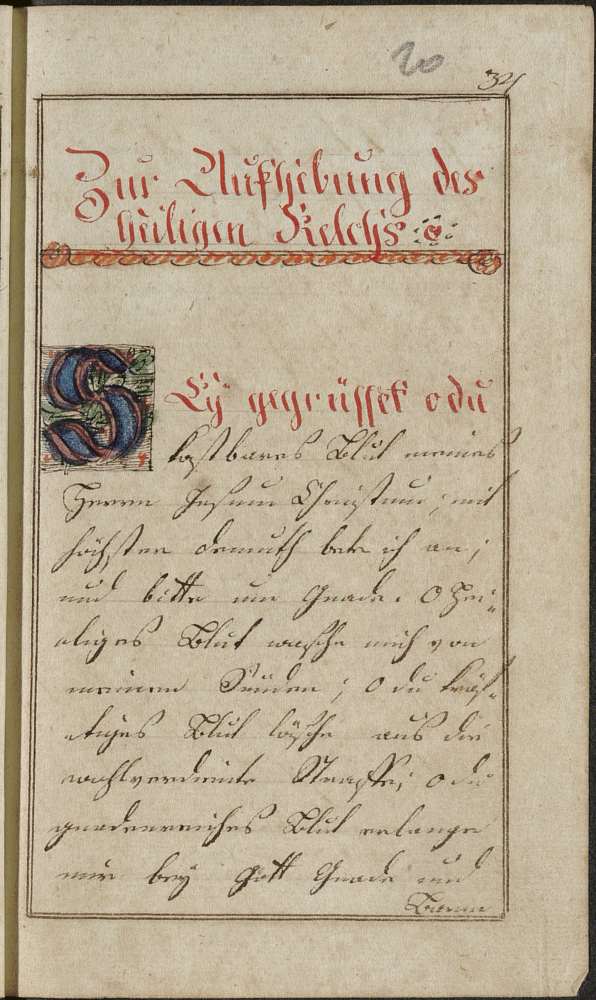 20
34
Zur Aufhebung des
heiligen Kelchs
Sey gegrüsset o du
kostbares Blut meines
Herrn Jesum Christum; mit
höchster demuth bete ich an;
und bitte um Gnade. O hei-
eliges Blut wasche mich von
meinen Sünden; O du kräf-
etiges Blut lösche aus die
wohlverdiente Straffe; o du
gnadenreiches Blut erlange
mir bey Gott Gnade und